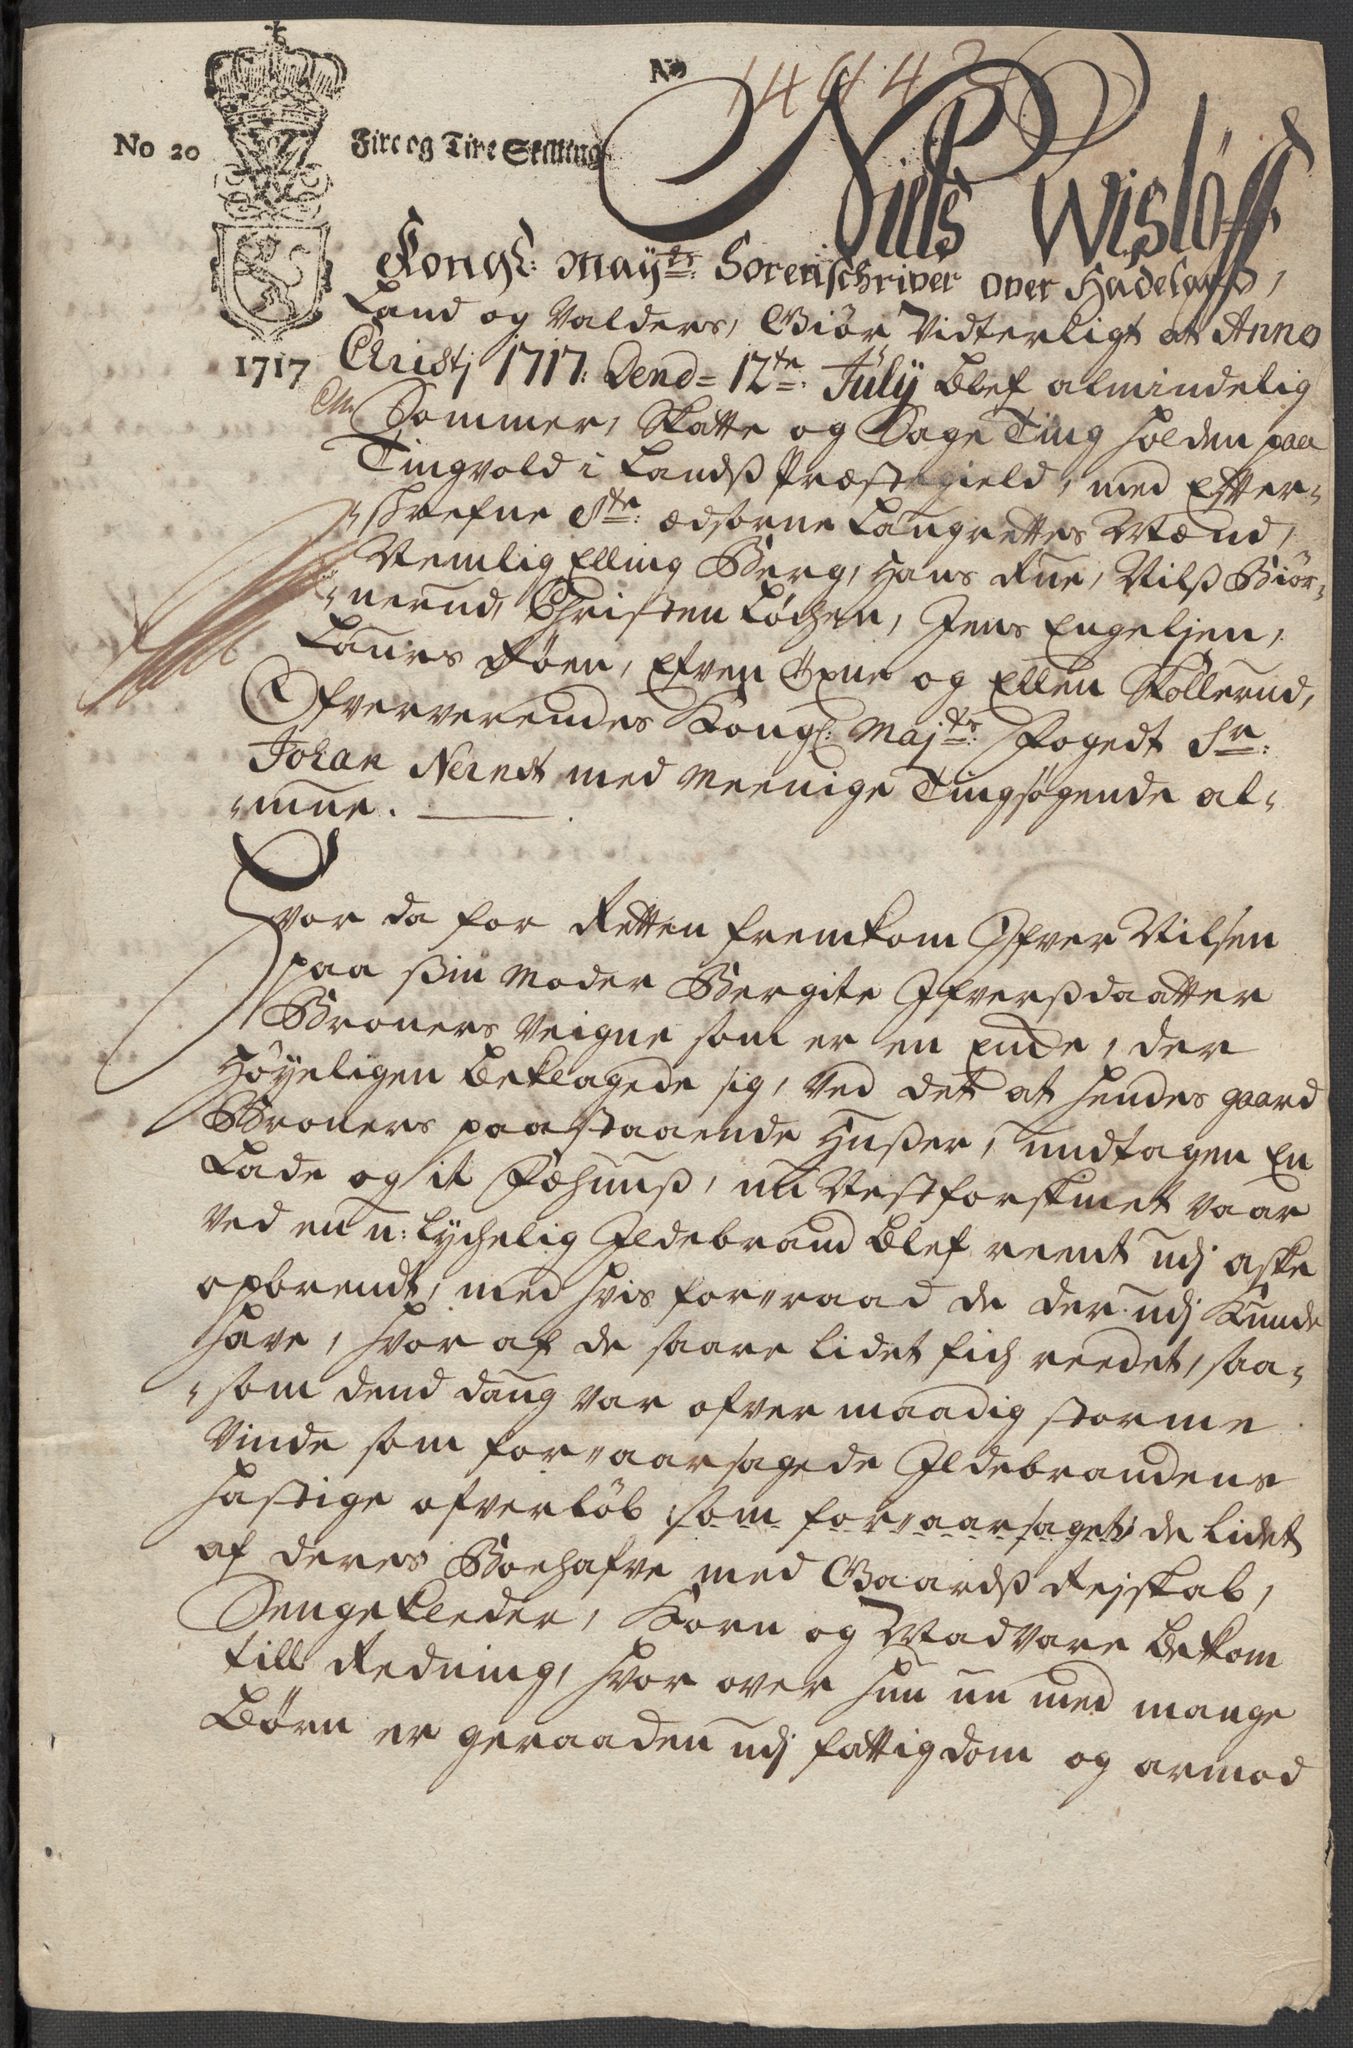 No 14443
No 20 Fire og Tive Skilling
1717
Niels Wisløff
Kongl: Mayts: Sorenschriver over Hadeland,
Land og Valders, Giør Vidterligt at Anno
Christj 1717: Dend= 12te: Julÿ blef almindelig
Sommer, Skatte og Sage Ting holden paa
Tingvold i Landß Præstegield, med Effter-
-skrefne 8te: Edsorne Laugrettes Mænd,
Nemlig Elling Berg, Hans Rue, Nilß Biør-
-nerud, Christen Løchen, Jens Engeljen,
Laurs Røen, Efven Øxne og Ellen Skøllerud,
Ofververendes Kongl: Majts: Fogedt Sr:
Johan Nerndt med Meenige Tingsøgende al-
-mue.
Hvor da for Retten fremkom Ifver Nilsen
paa ßin Moder Bergite Ifverßdaatter
Broners Veigne som er en Enche, der
Høyeligen beklagede sig, Ved det at hendes gaard
Broners paastaaende Hußer, undtagen En
Lade og it Fæhuuß, nu Nestforskinet Vaar
Ved en u:lychelig Ildebrand blef reent udj aske
opbrendt, med hvis for-raad de der udj Kunde
have, hvor af de saare lidet fich reedet, saa-
-som dend daug var ofver maadig storme
Vinde som for-aarsagede Ildebrandens
hastige ofverløb :som for-aarsaget: de lidet
af deres Boehafve med Gaardß Rejskab,
Sengekleder, Korn og Madvare bekom
till Redning, hvor over hun nu med mange
Børn er geraaden udj fattigdom og armod